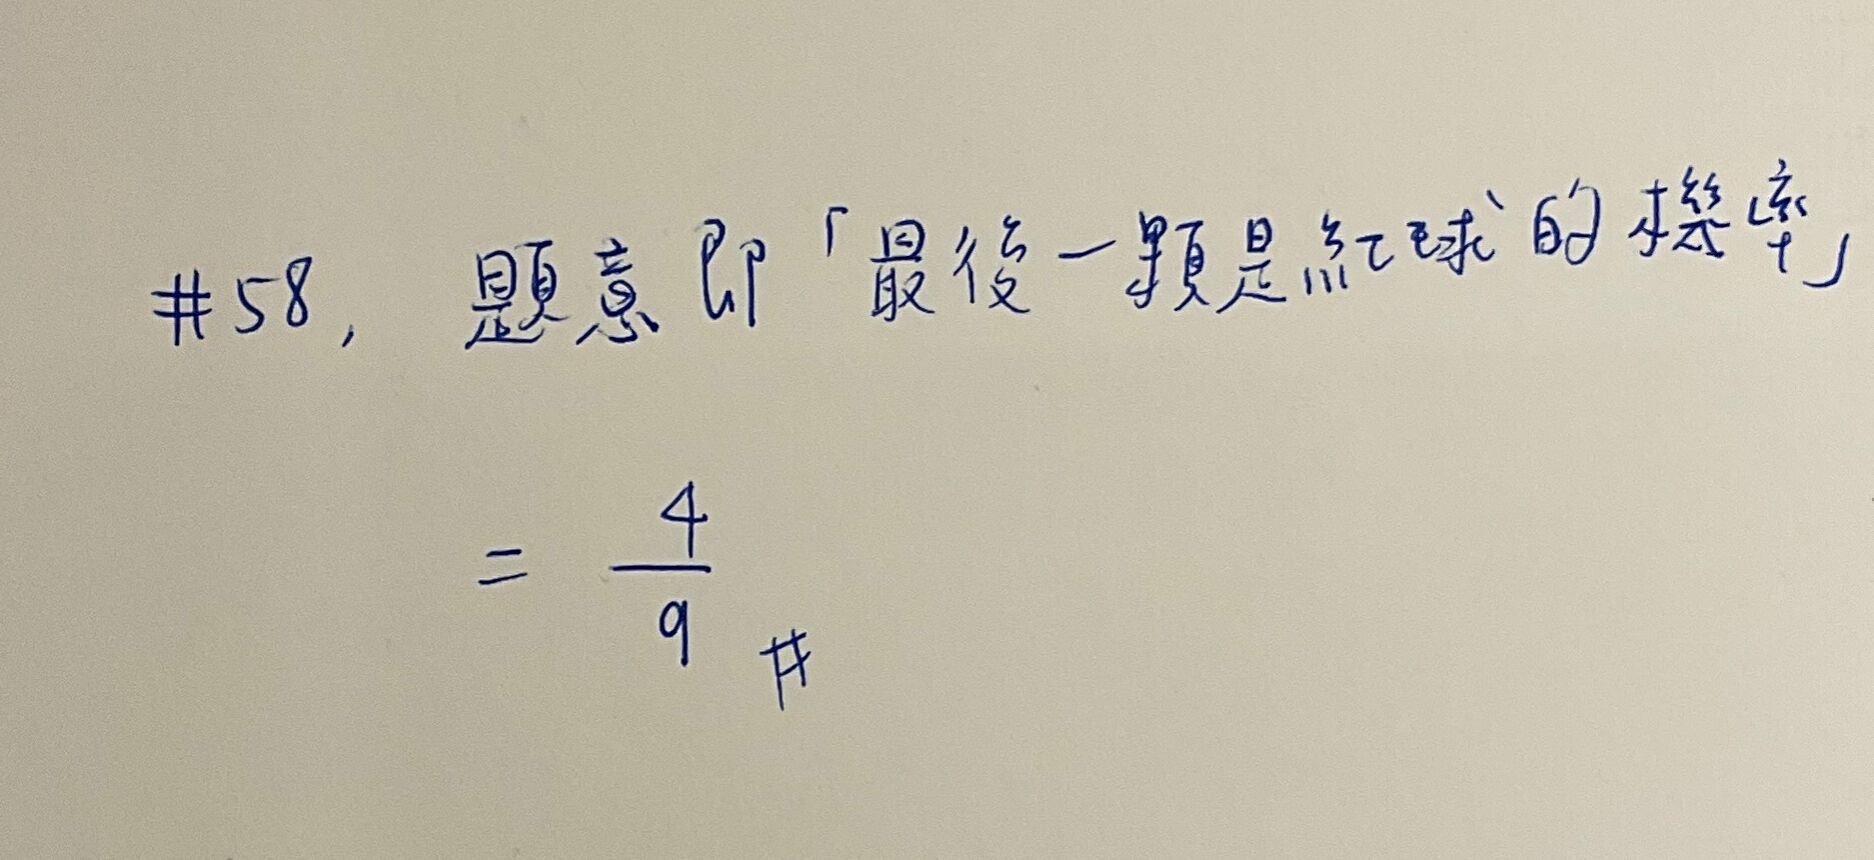 #58, 題意即「最後一顆是紅球的機率」
= 4/9 #